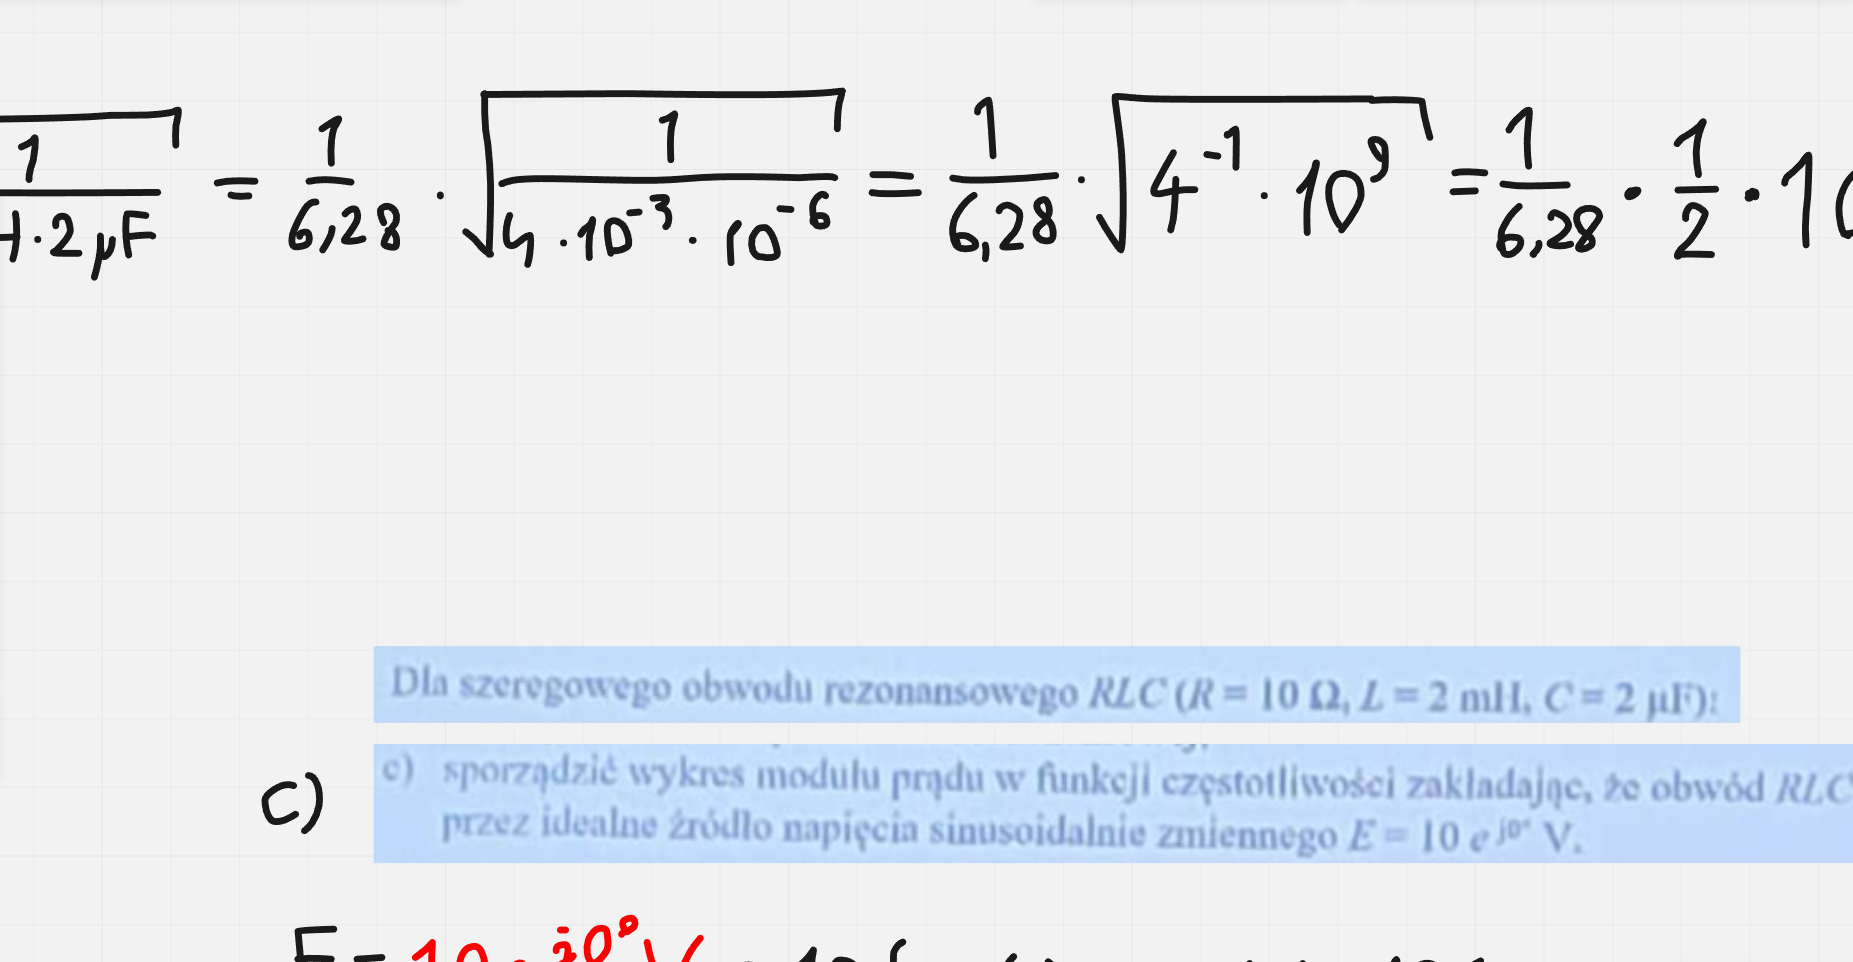 1 / H · 2 μF = 1/6,28 · √(1 / 4 · 10⁻³ · 10⁻⁶) = 1/6,28 · √(4⁻¹ · 10⁹) = 1/6,28 · 1/2 · 10
Dla szeregowego obwodu rezonansowego RLC (R = 10 Ω, L = 2 mH, C = 2 μF):
c) c) sporządzić wykres modułu prądu w funkcji częstotliwości zakładając, że obwód RLC
przez idealne źródło napięcia sinusoidalnie zmiennego E = 10 e^j0° V.